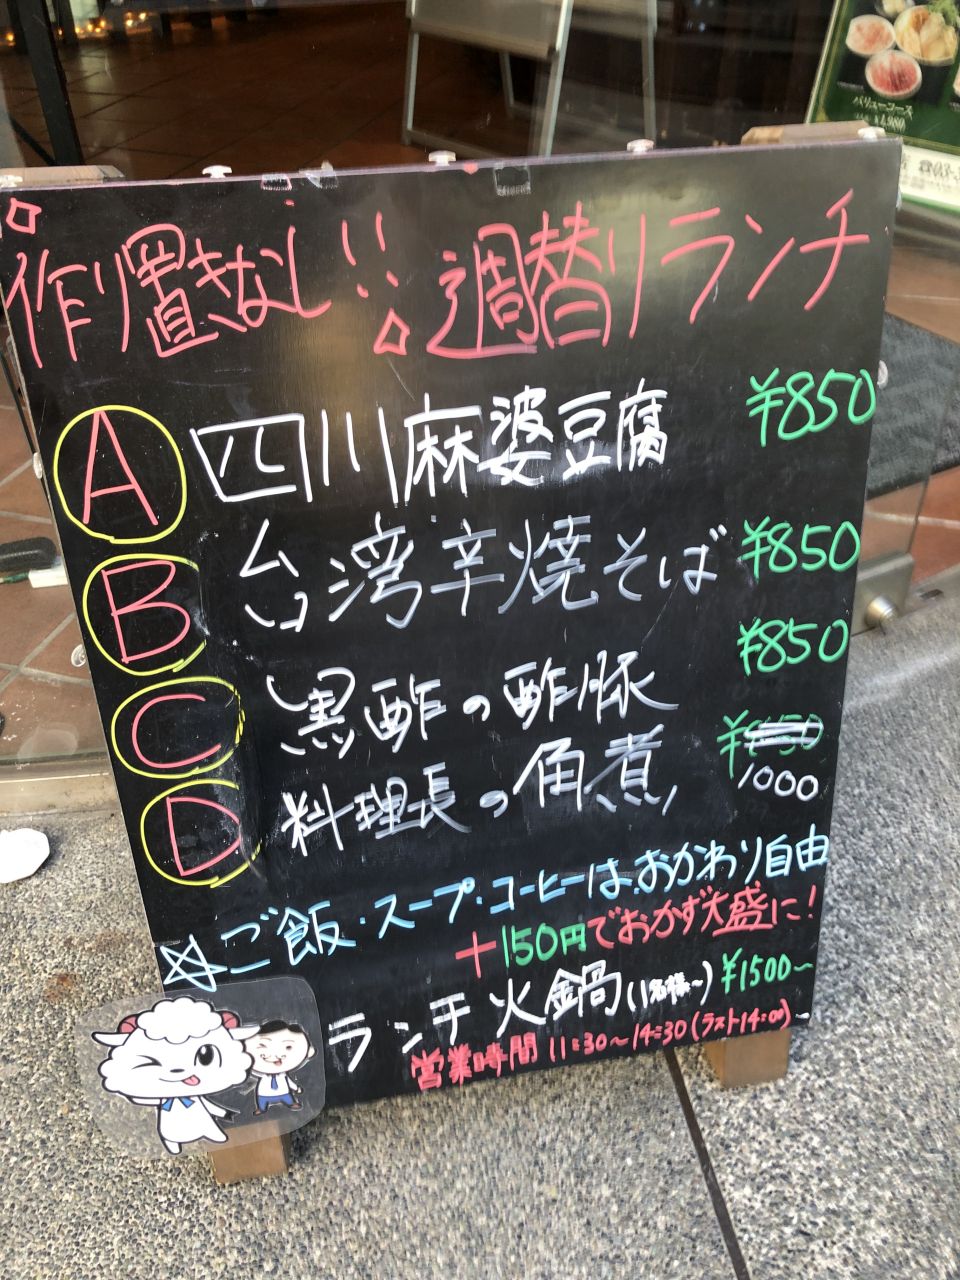 作り置きなし!! 週替りランチ
A 四川麻婆豆腐 ¥850
B 台湾辛焼そば ¥850
C 黒酢の酢豚 ¥850
D 料理長の角煮 ¥850 1000
☆ご飯・スープ・コーヒーはおかわり自由
+150円でおかず大盛に!
ランチ 火鍋(1名様~) ¥1500~
営業時間 11:30~14:30(ラスト14:00)
バリューコース
¥1,980
☎03-3